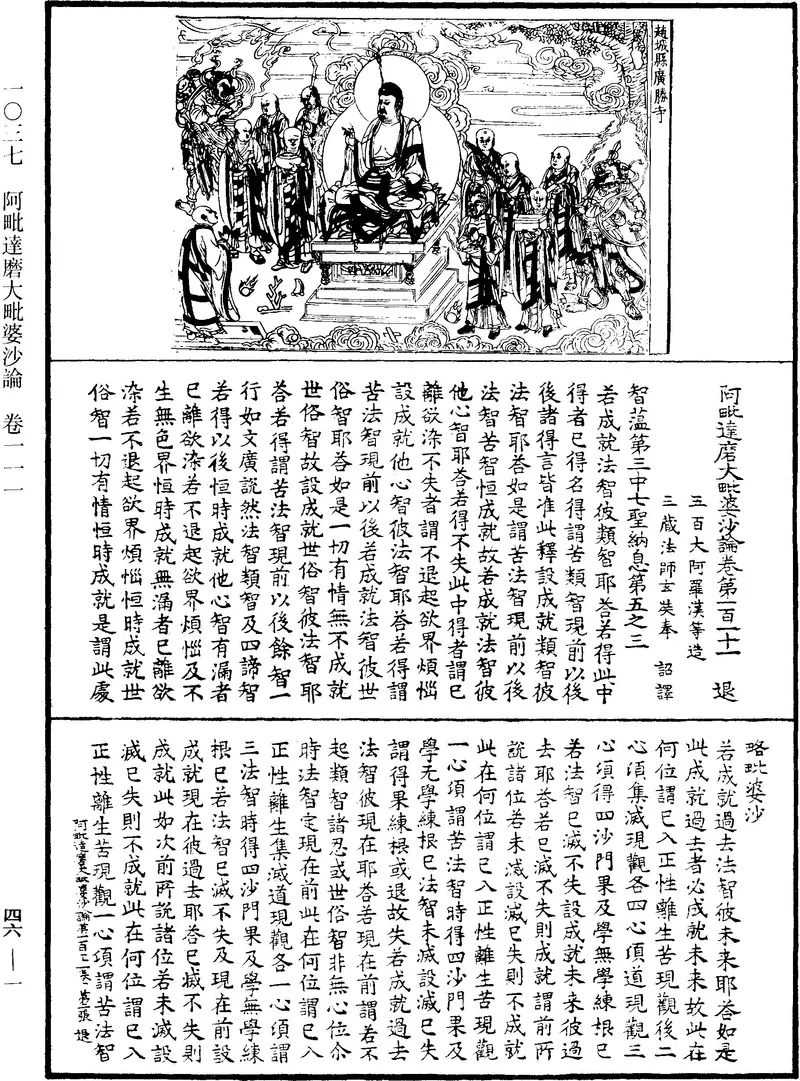 一〇三七　阿毗達磨大毗婆沙論　卷一一一
四六—一
趙城縣廣勝寺
阿毗達磨大毗婆沙論卷第一百一十一　退
五百大阿羅漢等造
三藏法師玄奘奉　詔譯
智蘊第三中七聖納息第五之三
若成就法智彼類智耶荅若得此中
得者已得名得謂苦類智現前以後
後諸得言皆准此釋設成就類智彼
法智耶荅如是謂苦法智現前以後
法智苦智恒成就故若成就法智彼
他心智耶荅若得不失此中得者謂已
離欲染不失者謂不退起欲界煩惱
設成就他心智彼法智耶荅若得謂
苦法智現前以後若成就法智彼世
俗智耶荅如是一切有情無不成就
世俗智故設成就世俗智彼法智耶
荅若得謂苦法智現前以後餘智一
行如文廣說然法智類智及四諦智
若得以後恒時成就他心智有漏者
已離欲染若不退起欲界煩惱及不
生無色界恒時成就無漏者已離欲
染若不退起欲界煩惱恒時成就世
俗智一切有情恒時成就是謂此處
略毗婆沙
若成就過去法智彼未來耶荅如是
此成就過去者必成就未來故此在
何位謂已入正性離生苦現觀後二
心頃集滅現觀各四心頃道現觀三
心頃得四沙門果及學無學練根已
若法智已滅不失設成就未來彼過
去耶荅若已滅不失則成就謂前所
說諸位若未滅設滅已失則不成就
此在何位謂已入正性離生苦現觀
一心頃謂苦法智時得四沙門果及
學无學練根已法智未滅設滅已失
謂得果練根或退故失若成就過去
法智彼現在耶荅若現在前謂若不
起類智諸忍或世俗智非無心位尒
時法智定現在前此在何位謂已入
正性離生集滅道現觀各一心頃謂
三法智時得四沙門果及學無學練
根已若法智已滅不失及現在前設
成就現在彼過去耶荅已滅不失則
成就此如次前所說諸位若未滅設
滅已失則不成就此在何位謂已入
正性離生苦現觀一心頃謂苦法智